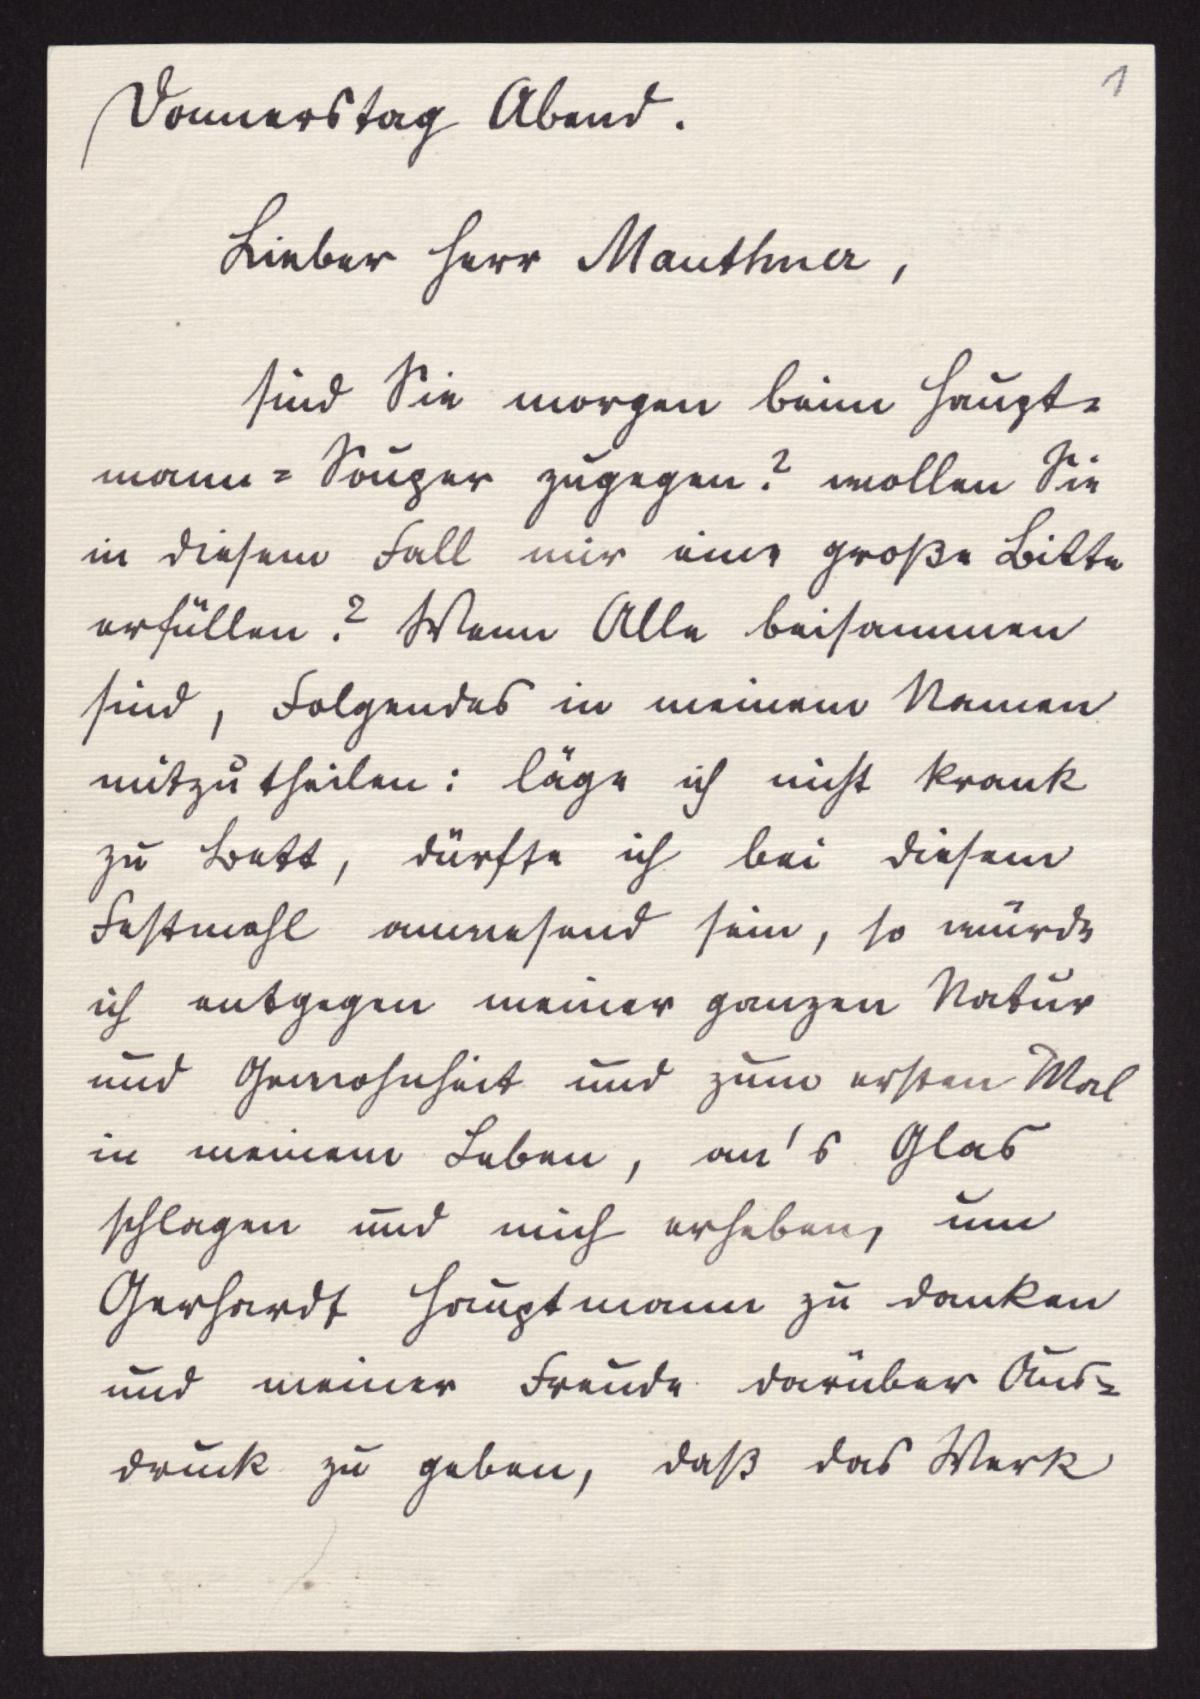 1
Donnerstag Abend.
Lieber Herr Mauthner,
sind Sie morgen beim Haupt=
mann=Souper zugegen? wollen Sie
in diesem Fall mir eine große Bitte
erfüllen? Wenn Alle beisammen
sind, Folgendes in meinem Namen
mitzutheilen: läge ich nicht krank
zu Bett, dürfte ich bei diesem
Festmahl anwesend sein, so würde
ich entgegen meiner ganzen Natur
und Gewohnheit und zum ersten Mal
in meinem Leben, an's Glas
schlagen und mich erheben, um
Gerhardt Hauptmann zu danken
und meiner Freude darüber Aus=
druck zu geben, daß das Werk